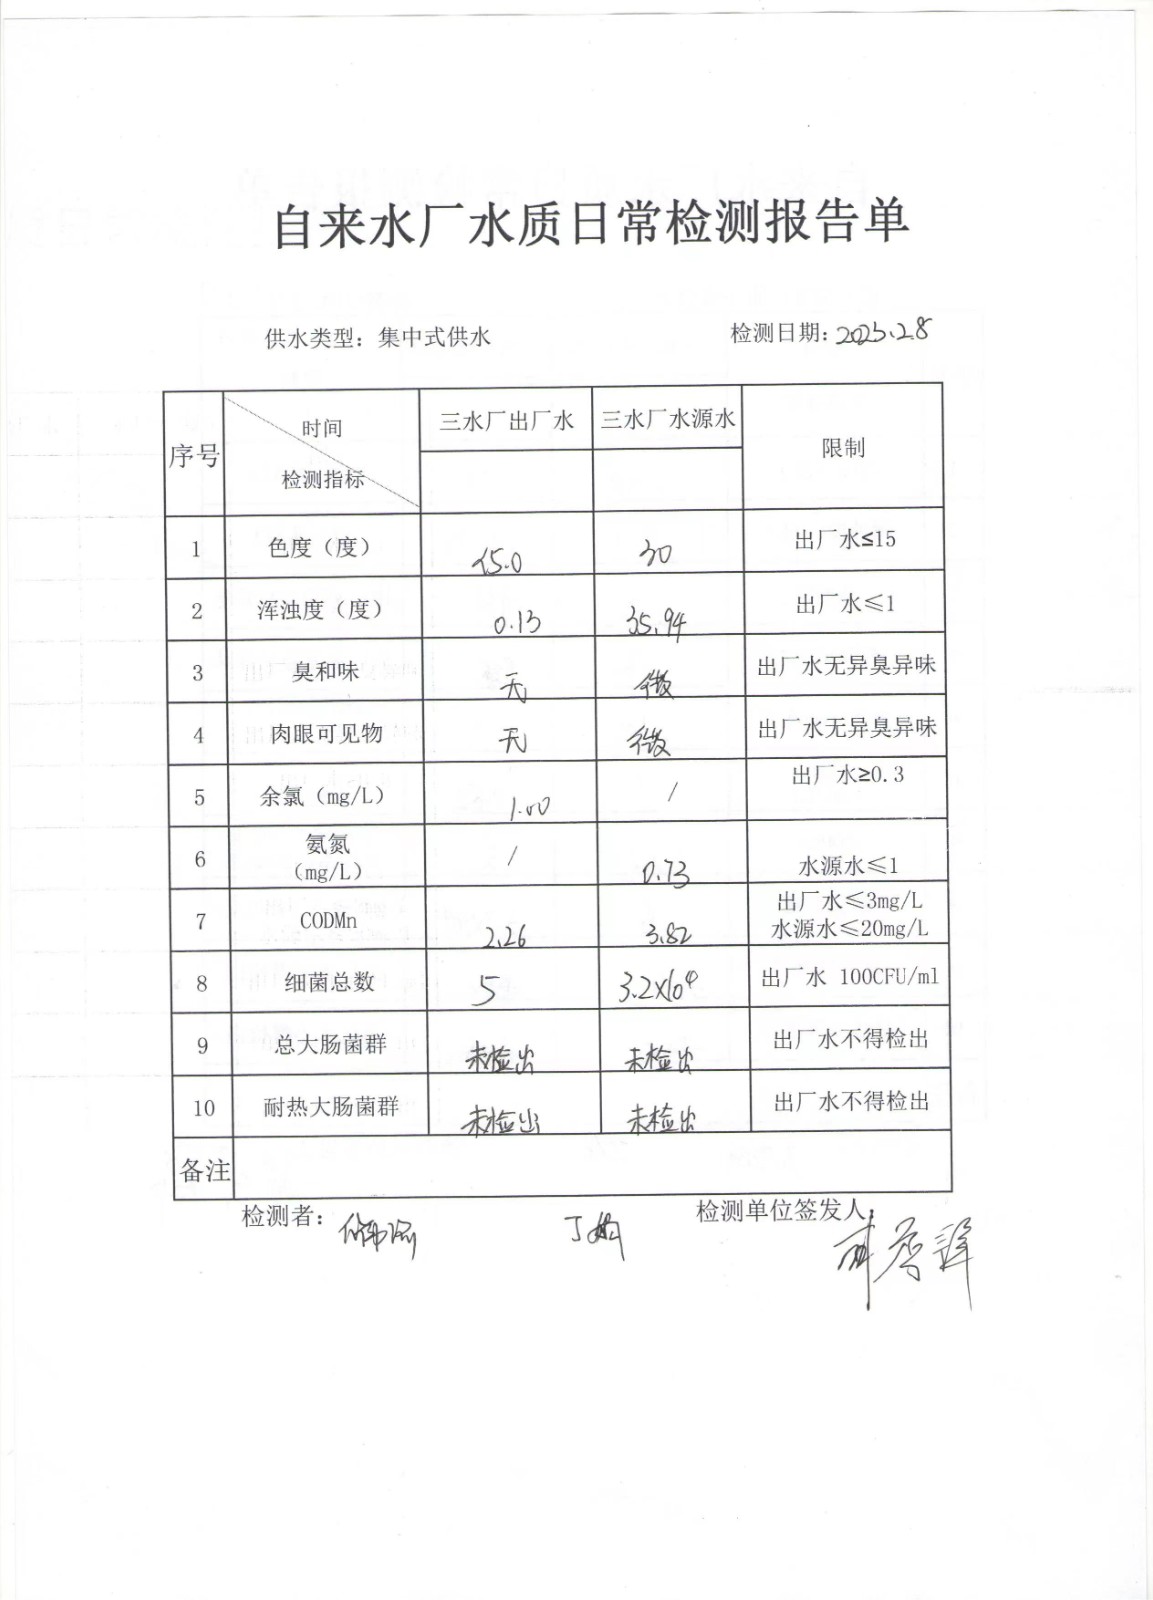 自来水厂水质日常检测报告单
供水类型：集中式供水 检测日期：2023.2.8
序号 时间 检测指标 三水厂出厂水 三水厂水源水 限制
1 色度（度） <5.0 30 出厂水≤15
2 浑浊度（度） 0.13 35.94 出厂水≤1
3 臭和味 无 微 出厂水无异臭异味
4 肉眼可见物 无 微 出厂水无异臭异味
5 余氯（mg/L） 1.00 / 出厂水≥0.3
6 氨氮（mg/L） / 0.73 水源水≤1
7 CODMn 2.26 3.82 出厂水≤3mg/L 水源水≤20mg/L
8 细菌总数 5 3.2×10⁴ 出厂水 100CFU/ml
9 总大肠菌群 未检出 未检出 出厂水不得检出
10 耐热大肠菌群 未检出 未检出 出厂水不得检出
备注
检测者： 丁 检测单位签发人：